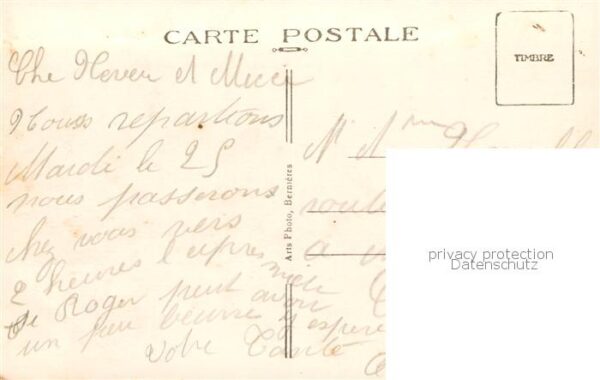 CARTE POSTALE
TIMBRE
Che Neveu et Niece
Nouss repartions
Mardi le 25
nous passerons
chez vous vers
2 heures l apres midi
Si Roger peut avoir
un peu beurre j espere
votre Tante
Arts Photo, Bernières
M. Mme
route
a
privacy protection
Datenschutz